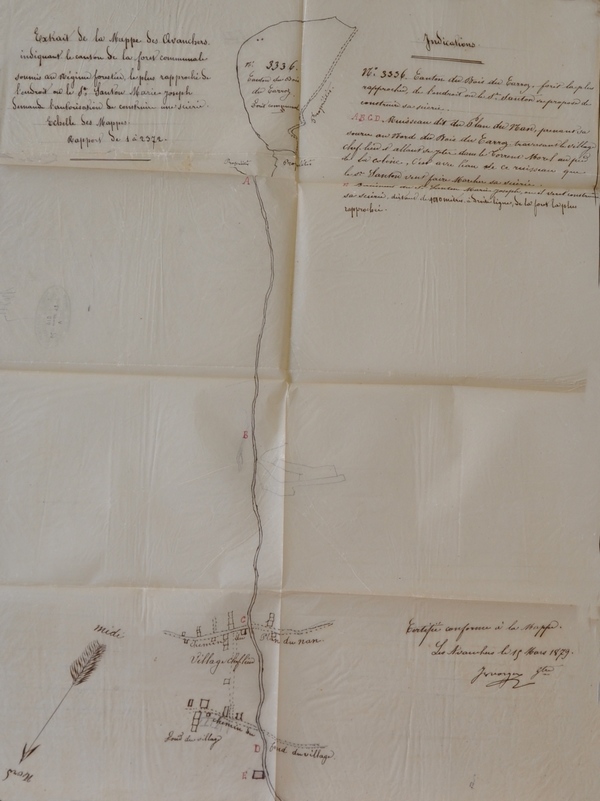 Extrait de la Mappe des Avanchers
indiquant le canton de la forêt communale
soumis au Régime forestier, le plus rapproché de
l'endroit où le Sr. Santon Marie-Joseph
demande l'autorisation de construire une scierie.
Echelle des Mappes
Rapport de 1 à 2372
N°. 3336.
Canton du Bois
du Darroy
Propriété
Propriété
Propriété
Indications
N°. 3336. Canton du Bois du Darroy, forêt la plus
rapprochée de l'endroit où le Sr. Santon se propose de
construire sa scierie.
A.B.C.D. Ruisseau dit du Plan du Nan, prenant sa
source au Nord du Bois du Darroy, traversant le village
chef-lieu et allant se jeter dans le Torrent Morel au pied
de la colline. C'est avec l'eau de ce ruisseau que
le Sr. Santon veut faire marcher sa scierie.
sa scierie, distant de mètres de la forêt la plus
rapprochée.
A
B
C
Chemin
Plan du Nan
Village Cheflieu
chemin du
fond du village
Fond du village
D
E
Midi
Nord
Certifié conforme à la Mappe.
Les Avanchers le 15 Mars 1879.